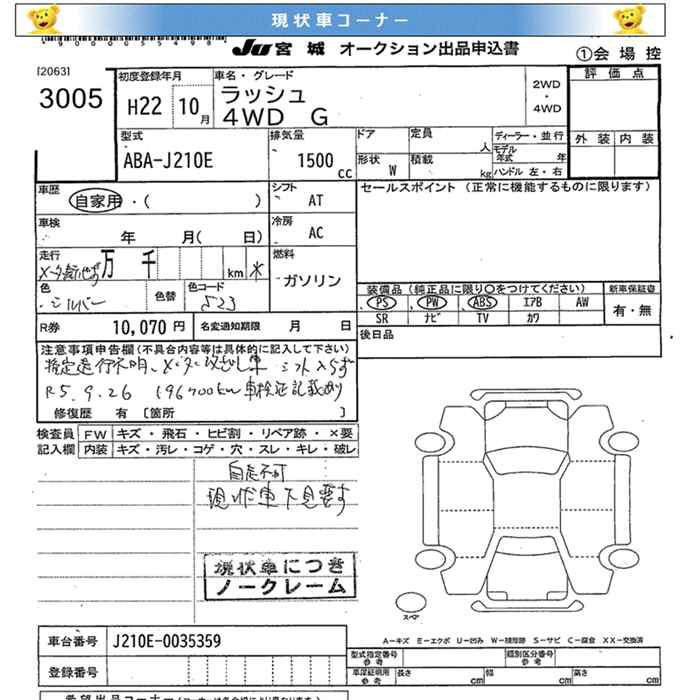 現状車コーナー
JU宮城 オークション出品申込書
①会場控
[2063]
3005
初度登録年月
H22 10月
車名・グレード
ラッシュ
4WD G
2WD
・
4WD
評価点
外装 内装
型式
ABA-J210E
排気量
1500 cc
ドア
定員 人
形状 W
積載 kg
ディーラー・並行
モデル年式 年
ハンドル 左・右
車歴
自家用・( )
シフト
AT
セールスポイント (正常に機能するものに限ります)
車検
年 月( 日)
冷房
AC
走行
万 千 km
燃料
ガソリン
色
シルバー
色替
色コード
S23
装備品 (純正品に限り○をつけてください)
新車保証書
PS PW ABS エアB AW
有・無
SR ナビ TV カワ
R券 10,070 円
名変通知期限 月 日
後日品
注意事項申告欄 (不具合内容等は具体的に記入して下さい)
推定走行不明、メーター改ざし車 シフト入らず
R5.9.26 196700km 車検証記載あり
修復歴 有 〔箇所 〕
検査員 FW キズ・飛石・ヒビ割・リペア跡・×要
記入欄 内装 キズ・汚レ・コゲ・穴・スレ・キレ・破レ
自走不可
現状車下見要す
現状車につき
ノークレーム
スペア
A-キズ E-エクボ U-凹み W-補修跡 S-サビ C-腐食 XX-交換済
車台番号 J210E-0035359
型式指定番号 参考
類別区分番号 参考
登録番号
車庫証明用 参考
長さ cm
幅 cm
高さ cm